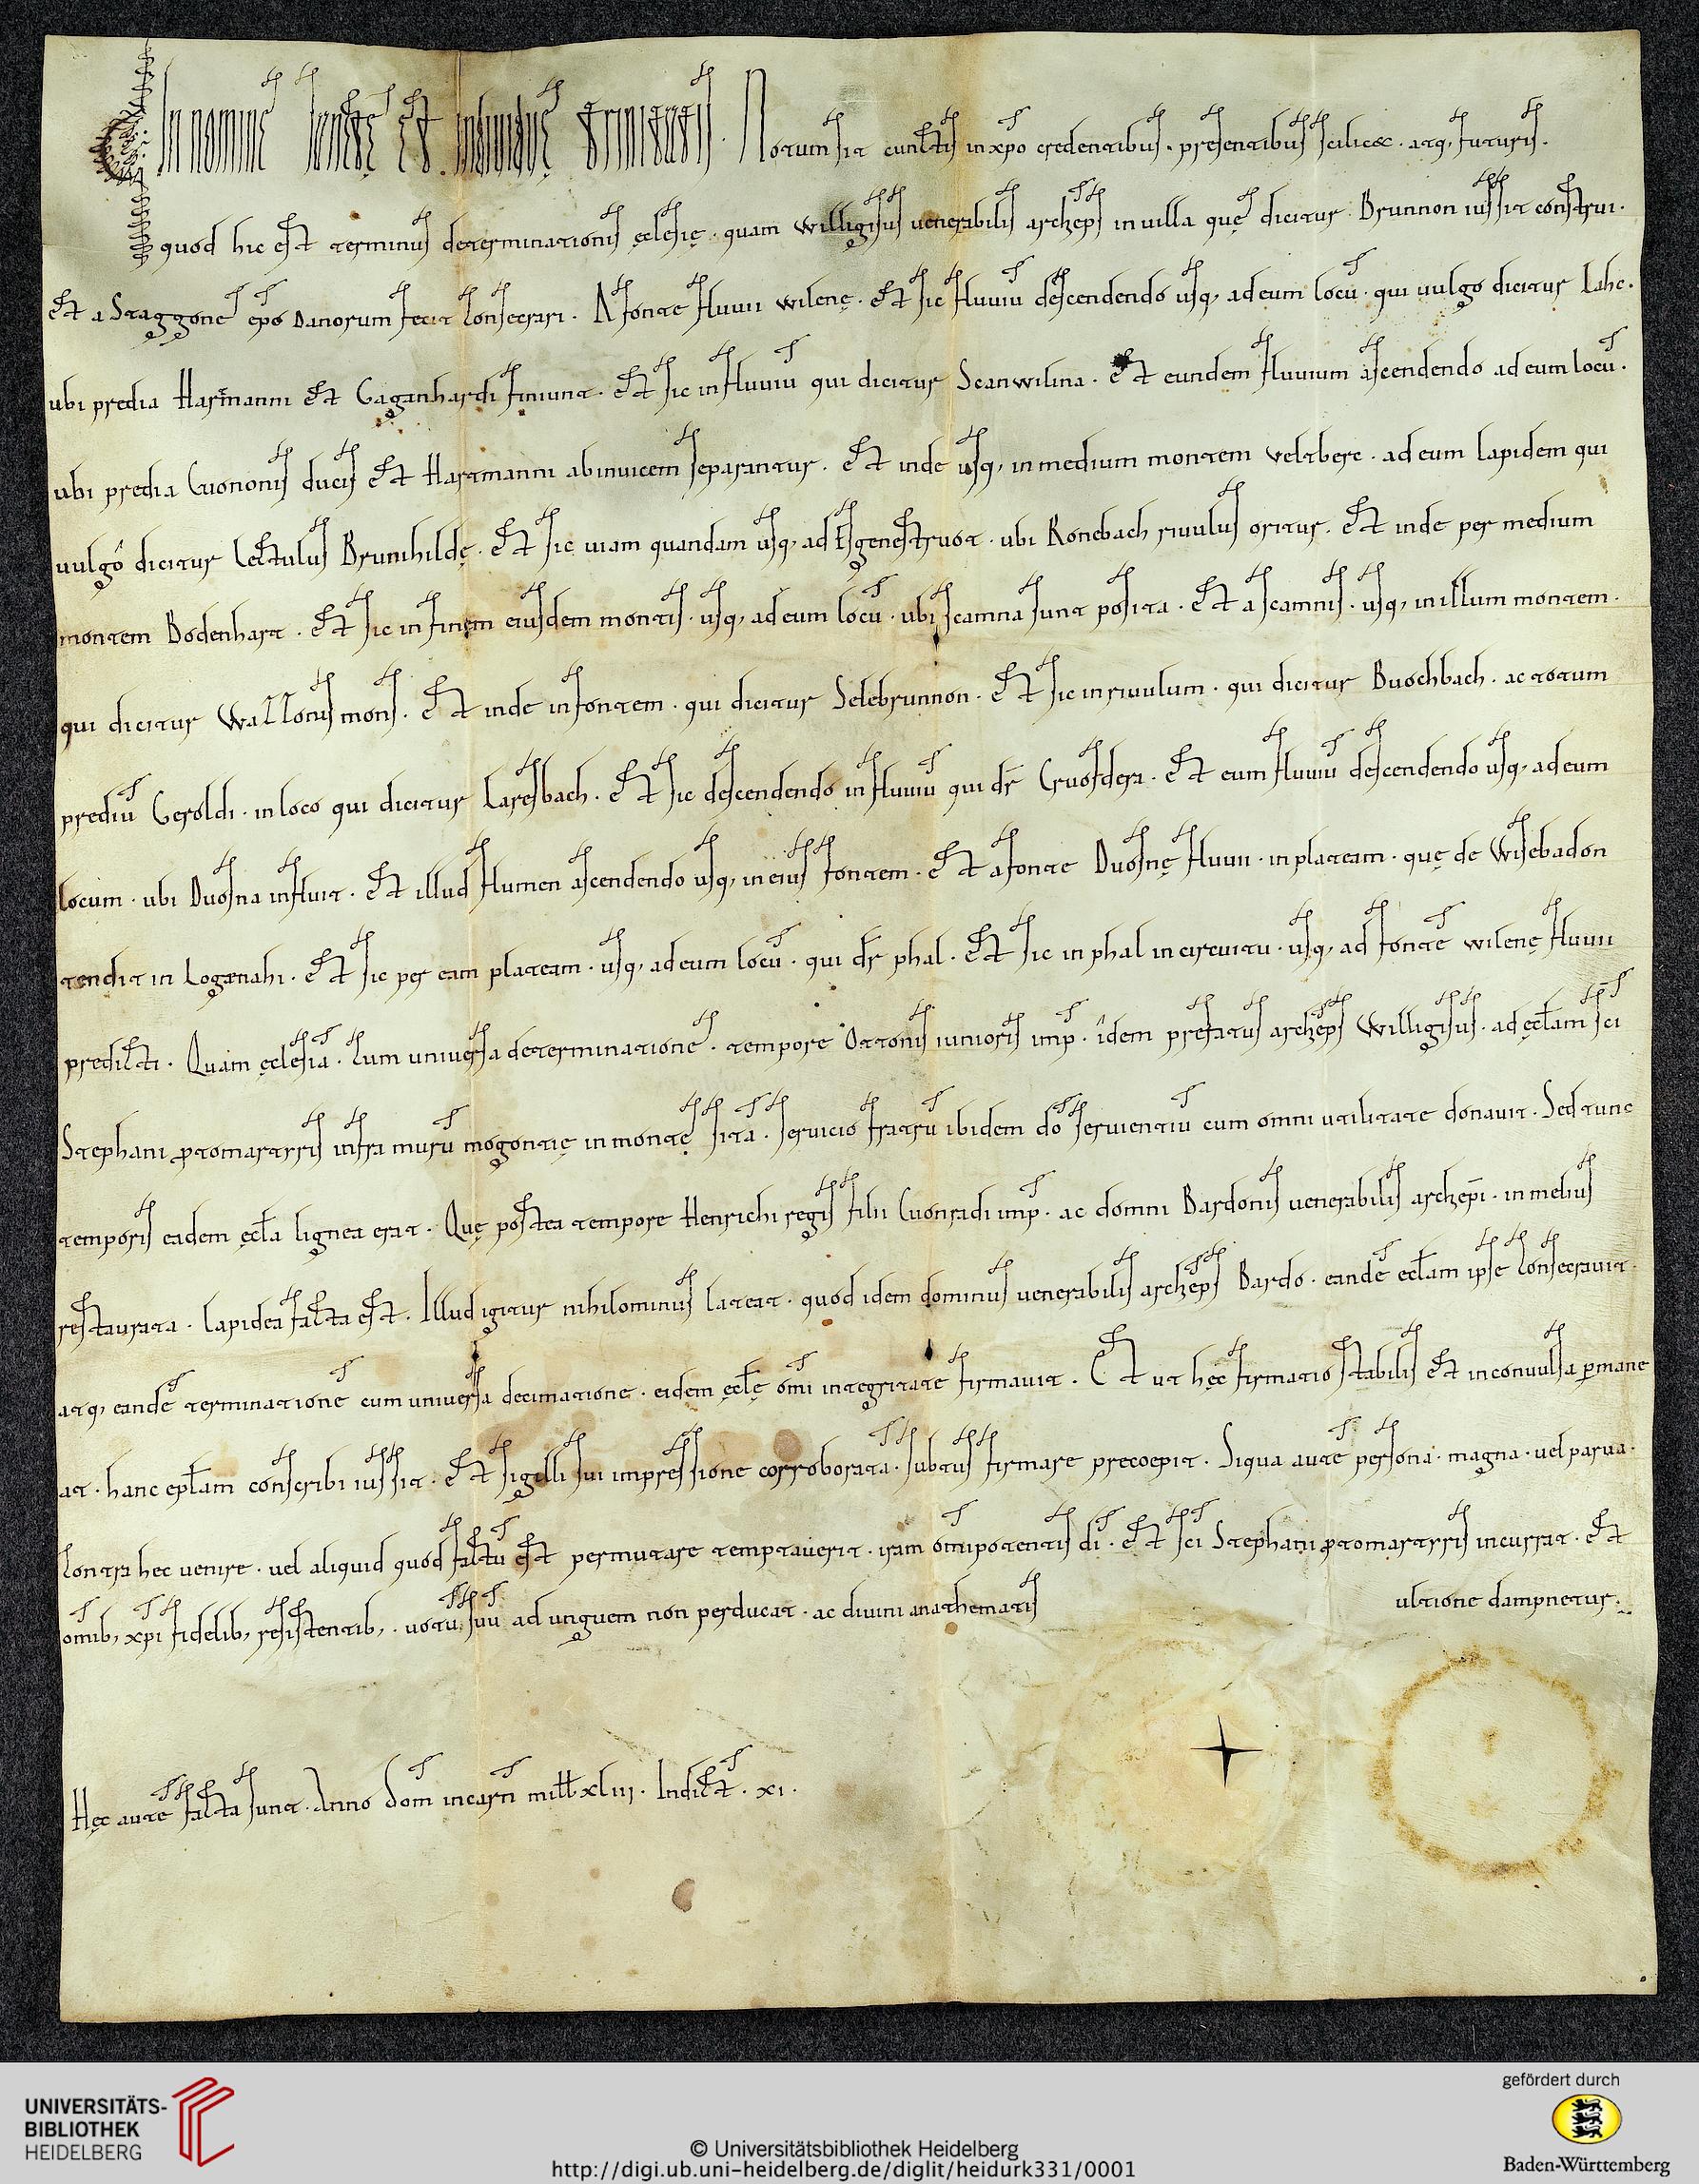 In nomine sanctę et individuę trinitatis. Notum sit cunctis in xp̄o credentibus. presentibus scilicet. atq; futuris.
quod hic est terminus determinationis ęclesię. quam Willigisus venerabilis archiep̄s in villa quę dicitur Brunnon iussit construi.
et a Staggone ep̄o Danorum fecit consecrari. A fonte fluvii wilenę. et sic fluviū descendendo usq; ad eum locū. qui vulgo dicitur Lahc.
ubi predia Hartmanni et Gaganhardi finiunt. et sic in fluviū qui dicitur Scanwilina. et eundem fluvium ascendendo ad eum locū.
ubi predia Cuononis ducis et Hartmanni abinvicem separantur. et inde usq; in medium montem veltbere. ad eum lapidem qui
vulgo dicitur lectulus Brunihildę. et sic viam quandam usq; ad Ergenestruot. ubi Ronebach rivulus oritur. et inde per medium
montem Bodenhart. et sic in finem eiusdem montis. usq; ad eum locū. ubi scamna sunt posita. et a scamnis. usq; in illum montem.
qui dicitur Wallonis mons. et inde in fontem. qui dicitur Selebrunnon. et sic in rivulum. qui dicitur Buochbach. ac totum
prediū Geroldi. in loco qui dicitur Laresbach. et sic descendendo in fluviū qui dr̄ Cruofdera. et eum fluviū descendendo usq; ad eum
locum. ubi Duosna influit. et illud flumen ascendendo usq; in eius fontem. et a fonte Duosnę fluvii. in plateam. quę de Wisebadon
tendit in Loganahi. et sic per eam plateam. usq; ad eum locū. qui dr̄ phal. et sic in phal in circuitu. usq; ad fontē wilenę fluvii
predicti. Quam ęclesia. cum universa determinationē. tempore Ottonis iunioris imp̄. idem prefatus archiep̄s Willigisus. ad ęcłam sc̄i
Stephani protomartyris infra murū mogontię in monte sita. servicio fratrū ibidem dō servientiū cum omni utilitate donavit. Sed tunc
temporis eadem ęcła lignea erat. Quę postea tempore Henrichi regis filii Cuonradi imp̄. ac domni Bardonis venerabilis archiep̄i. in melius
restaurata. lapidea facta est. Illud igitur nihilominus lateat. quod idem dominus venerabilis archiep̄s Bardo. eandē ecłam ipse consecravit.
atq; eandē terminationē cum universa decimatione. eidem ęcłę om̄i integritate firmavit. Et ut hęc firmatio stabilis et inconvulsa p̄mane
at. hanc epłam conscribi iussit. et sigilli sui impressione corroborata. subtus firmare precoepit. Siqua autē persona. magna. vel parva.
contra hec venire. vel aliquid quod factū est permutare temptaverit. iram om̄ipotentis dī. et sc̄i Stephani protomartyris incurrat. et
om̄ib; xp̄i fidelib; resistentib;. votū suū ad unguem non perducat. ac divini anathematis ultione dampnetur.
Hęc autē facta sunt. Anno dom̄ incarn̄ miłł xliii. Indict. xi.
UNIVERSITÄTS-
BIBLIOTHEK
HEIDELBERG
© Universitätsbibliothek Heidelberg
http://digi.ub.uni-heidelberg.de/diglit/heidurk331/0001
gefördert durch
Baden-Württemberg